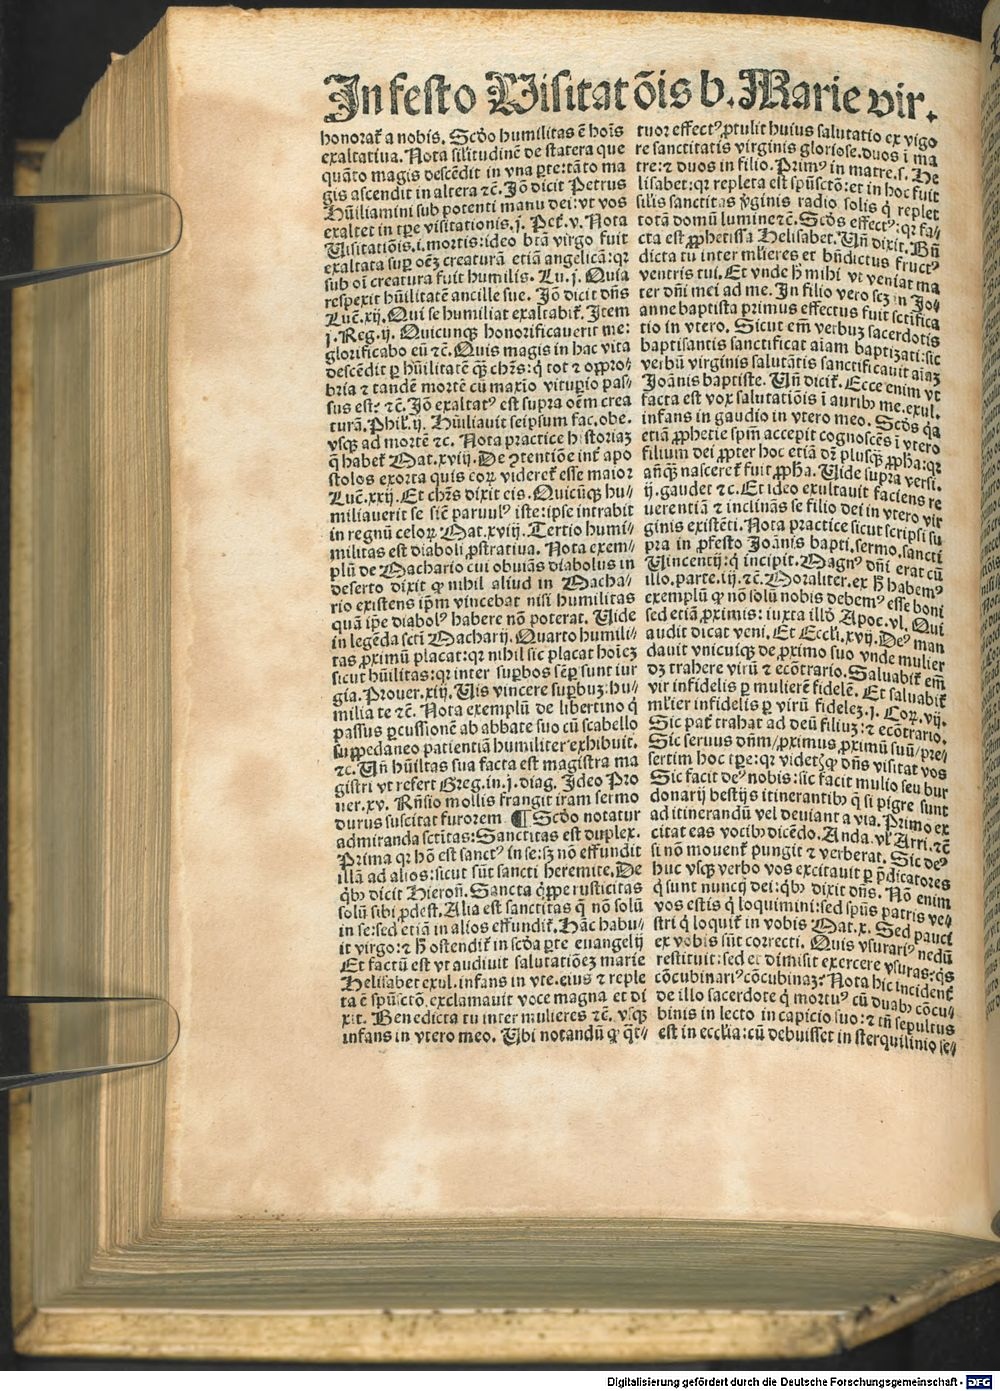 In festo Visitatõis b. Marie vir.
honorat̃ a nobis. Scd̃o humilitas ẽ hoĩs
exaltatiua. Nota silitudinẽ de statera que
quãto magis descẽdit in vna ꝑte: tãto ma
gis ascendit in altera ⁊c̃. Iõ dicit Petrus
Hũiliamini sub potenti manu dei: vt vos
exaltet in tꝑe visitationis. j. Pet̃. v. Nota
Visitatiõis .i. mortis: ideo btã virgo fuit
exaltata suꝑ oẽʒ creaturã etiã angelicã: qꝛ
sub oĩ creatura fuit humilis. Lu. j. Quia
respexit hũilitatẽ ancille sue. Iõ dicit dñs
Luc̃. xij. Qui se humiliat exaltabit̃. Item
j. Reg. ij. Quicunqʒ honorificauerit me:
glorificabo eũ ⁊c̃. Quis magis in hac vita
descẽdit ꝑ hũilitatẽ qʒ̃ chr̃s: q̇ tot ⁊ oꝓro⸗
bria ⁊ tandẽ mortẽ cũ maxĩo vituꝑio pas⸗
sus est: ⁊c̃. Iõ exaltatꝰ est supra oẽm crea
turã. Phil̃. ij. Hũiliauit seipsum fac. obe.
vsqʒ ad mortẽ ⁊c. Nota practice historiaʒ
q̃ habet̃ Mat. xviij. De ꝯtentiõe int̃ apo
stolos exorta quis eoꝝ videret̃ esse maior
Luc̃. xxij. Et chr̃s dixit eis. Quicũqʒ hu⸗
miliauerit se sic̃ paruulꝰ iste: ipse intrabit
in regnũ celoꝝ Mat. xviij. Tertio humi⸗
militas est diaboli ꝓstratiua. Nota exem⸗
plũ de Machario cui obuiãs diabolus in
deserto dixit ꝙ nihil aliud in Macha⸗
rio existens ip̃m vincebat nisi humilitas
quã ip̃e diabolꝰ habere nõ poterat. Vide
in legẽda sctĩ Macharij. Quarto humili⸗
tas ꝓximũ placat: qꝛ nihil sic placat hoĩeʒ
sicut hũilitas: qꝛ inter suꝑbos sẽꝑ sunt iur
gia. Prouer. xiij. Vis vincere suꝑbuʒ: hu⸗
milia te ⁊c̃. Nota exemplũ de libertino q̇
passus ꝑcussionẽ ab abbate suo cũ scabello
suppedaneo patientiã humiliter exhibuit.
⁊c. Vñ hũiltas sua facta est magistra ma
gistri vt refert Greg. in. j. diag. Ideo Pro
uer. xv. Rñsio mollis frangit iram sermo
durus suscitat furorem ¶ Scd̃o notatur
admiranda sctĩtas: Sanctitas est duplex.
Prima qꝛ hõ est sanctꝰ in se: sʒ nõ effundit
illã ad alios: sicut sũt sancti heremite. De
q̇bꝰ dicit Hieroñ. Sancta q̇ppe rusticitas
solũ sibi ꝓdest. Alia est sanctitas q̃ nõ solũ
in se: sed etiã in alios effundit̃. Hãc habu⸗
it virgo: ⁊ h̃ ostendit̃ in scd̃a ꝑte euangelij
Et factũ est vt audiuit salutatiõeʒ marie
Helisabet exul. infans in vte. eius ⁊ reple
ta ẽ spũsctõ. exclamauit voce magna et di
xit. Benedicta tu inter mulieres ⁊c̃. vsqʒ
infans in vtero meo. Vbi notandũ ꝙ q̃t⸗
tuor effectꝰ ꝓtulit huius salutatio ex vigo
re sanctitatis virginis gloriose. duos ĩ ma
tre: ⁊ duos in filio. Primꝰ in matre. s. He
lisabet: qꝛ repleta est spũsctõ: et in hoc fuit
silis sanctitas v̓ginis radio solis q̇ replet
totã domũ lumine ⁊c̃. Scd̃s effectꝰ: qꝛ fa⸗
cta est ꝓphetissa Helisabet. Vñ dixit. Bñ
dicta tu inter mulieres et bñdictus fructꝰ
ventris tui. Et vnde h̃ mihi vt veniat ma
ter dñi mei ad me. In filio vero scʒ in Jo⸗
anne baptista primus effectus fuit sctĩfica
tio in vtero. Sicut em̃ verbuʒ sacerdotis
baptisantis sanctificat aĩam baptizati: sic
verbũ virginis salutãtis sanctificauit aĩaʒ
Joãnis baptiste. Vñ dicit̃. Ecce enim vt
facta est vox salutatiõis ĩ auribꝰ me. exul.
infans in gaudio in vtero meo. Scd̃s q̇a
etiã ꝓphetie spm̃ accepit cognoscẽs ĩ vtero
filium dei ꝓpter hoc etiã dʒ̃ plusqʒ̃ ꝓpha: qꝛ
añqʒ̃ nasceret̃ fuit ꝓpha. Vide supra versi.
ij. gaudet ⁊c. Et ideo exultauit faciens re
uerentiã ⁊ inclinãs se filio dei in vtero vir
ginis existẽti. Nota practice sicut scripsi su
pra in ꝓfesto Joãnis bapti. sermo. sancti
Vincentij: q̇ incipit. Magnꝰ dñi erat cũ
illo. parte. iij. ⁊c̃. Moraliter. ex h̃ habemꝰ
exemplũ ꝙ nõ solũ nobis debemꝰ esse boni
sed etiã ꝓximis: iuxta illd̃ Apoc. vl. Qui
audit dicat veni. Et Eccli. xvij. Deꝰ man
dauit vnicuiqʒ de ꝓximo suo vnde mulier
dʒ trahere virũ ⁊ ecõtrario. Saluabit̃ em̃
vir infidelis ꝑ mulierẽ fidelẽ. Et saluabit̃
ml̃ier infidelis ꝑ virũ fideleʒ. j. Coꝝ. vij.
Sic pat̃ trahat ad deũ filiuʒ: ⁊ ecõtrario.
Sic seruus dñm/ ꝓximus ꝓximũ suũ/ pre⸗
sertim hoc tꝑe: qꝛ videtʒ ꝙ dñs visitat vos
Sic facit deꝰ nobis: sic facit mulio seu bur
donarij bestijs itinerantibꝰ q̃ si pigre sunt
ad itinerandũ vel deuiant a via. Primo ex
citat eas vocibꝰ dicẽdo. Anda. vl̃ Arri. ⁊c̃
si nõ mouent̃ pungit ⁊ verberat. Sic deꝰ
huc vsqʒ verbo vos excitauit ꝑ p̃dicatores
q̇ sunt nuncij dei: q̇bꝰ dixit dñs. Nõ enim
vos estis q̇ loquimini: sed spũs patris ve⸗
stri q̇ loquit̃ in vobis Mat. x. Sed pauci
ex vobis sũt correcti. Quis vsurariꝰ nedũ
restituit: sed et dimisit exercere vsuras: q̇s
cõcubinariꝰ cõcubinaʒ: Nota hic incident̃
de illo sacerdote q̇ mortuꝰ cũ duabꝰ cõcu⸗
binis in lecto in capicio suo: ⁊ tñ sepultus
est in ecclia: cũ debuisset in sterquilinio se⸗
Digitalisierung gefördert durch die Deutsche Forschungsgemeinschaft - DFG